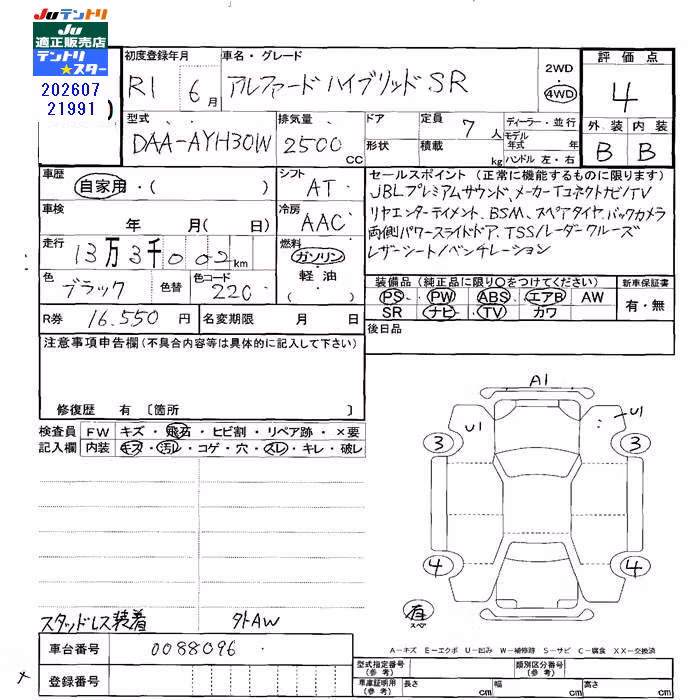 JUテントリ
JU
適正販売店
テントリ
★スター
202607
21991
初度登録年月 車名・グレード 評価点
R1 6月 アルファードハイブリッドSR 2WD 4WD 4
型式 排気量 ドア 定員 7人 ディーラー・並行 外装 内装
DAA-AYH30W 2500CC 形状 積載 kg モデル年式 年 B B
ハンドル 左・右
車歴 自家用・( ) シフト AT セールスポイント(正常に機能するものに限る)
JBLプレミアムサウンド、メーカーTコネクトナビ/TV
車検 年 月( 日) 冷房 AAC リヤエンターテイメント、BSM、スペアタイヤ、バックカメラ
両側パワースライドドア、TSS/レーダークルーズ
走行 13万3千002km 燃料 ガソリン・軽油・( ) レザーシート/ベンチレーション
色 ブラック 色替 色コード 220 装備品(純正品に限り○をつけてください) 新車保証書
PS PW ABS エアB AW 有・無
SR ナビ TV カワ
R券 16.550円 名変期限 月 日 後日品
注意事項申告欄(不具合内容等は具体的に記入して下さい)
修復歴 有〔箇所 〕
検査員 FW キズ・飛石・ヒビ割・リペア跡・×要
記入欄 内装 キズ・汚レ・コゲ・穴・スレ・キレ・破レ
A1
U1 U1
3 3
4 4
有
スペア
スタッドレス装着 外AW
A-キズ E-エクボ U-凹み W-補修跡 S-サビ C-腐食 XX-交換済
車台番号 0088096
登録番号
型式指定番号(参考) 類別区分番号(参考)
車庫証明用(参考) 長さ cm 幅 cm 高さ cm